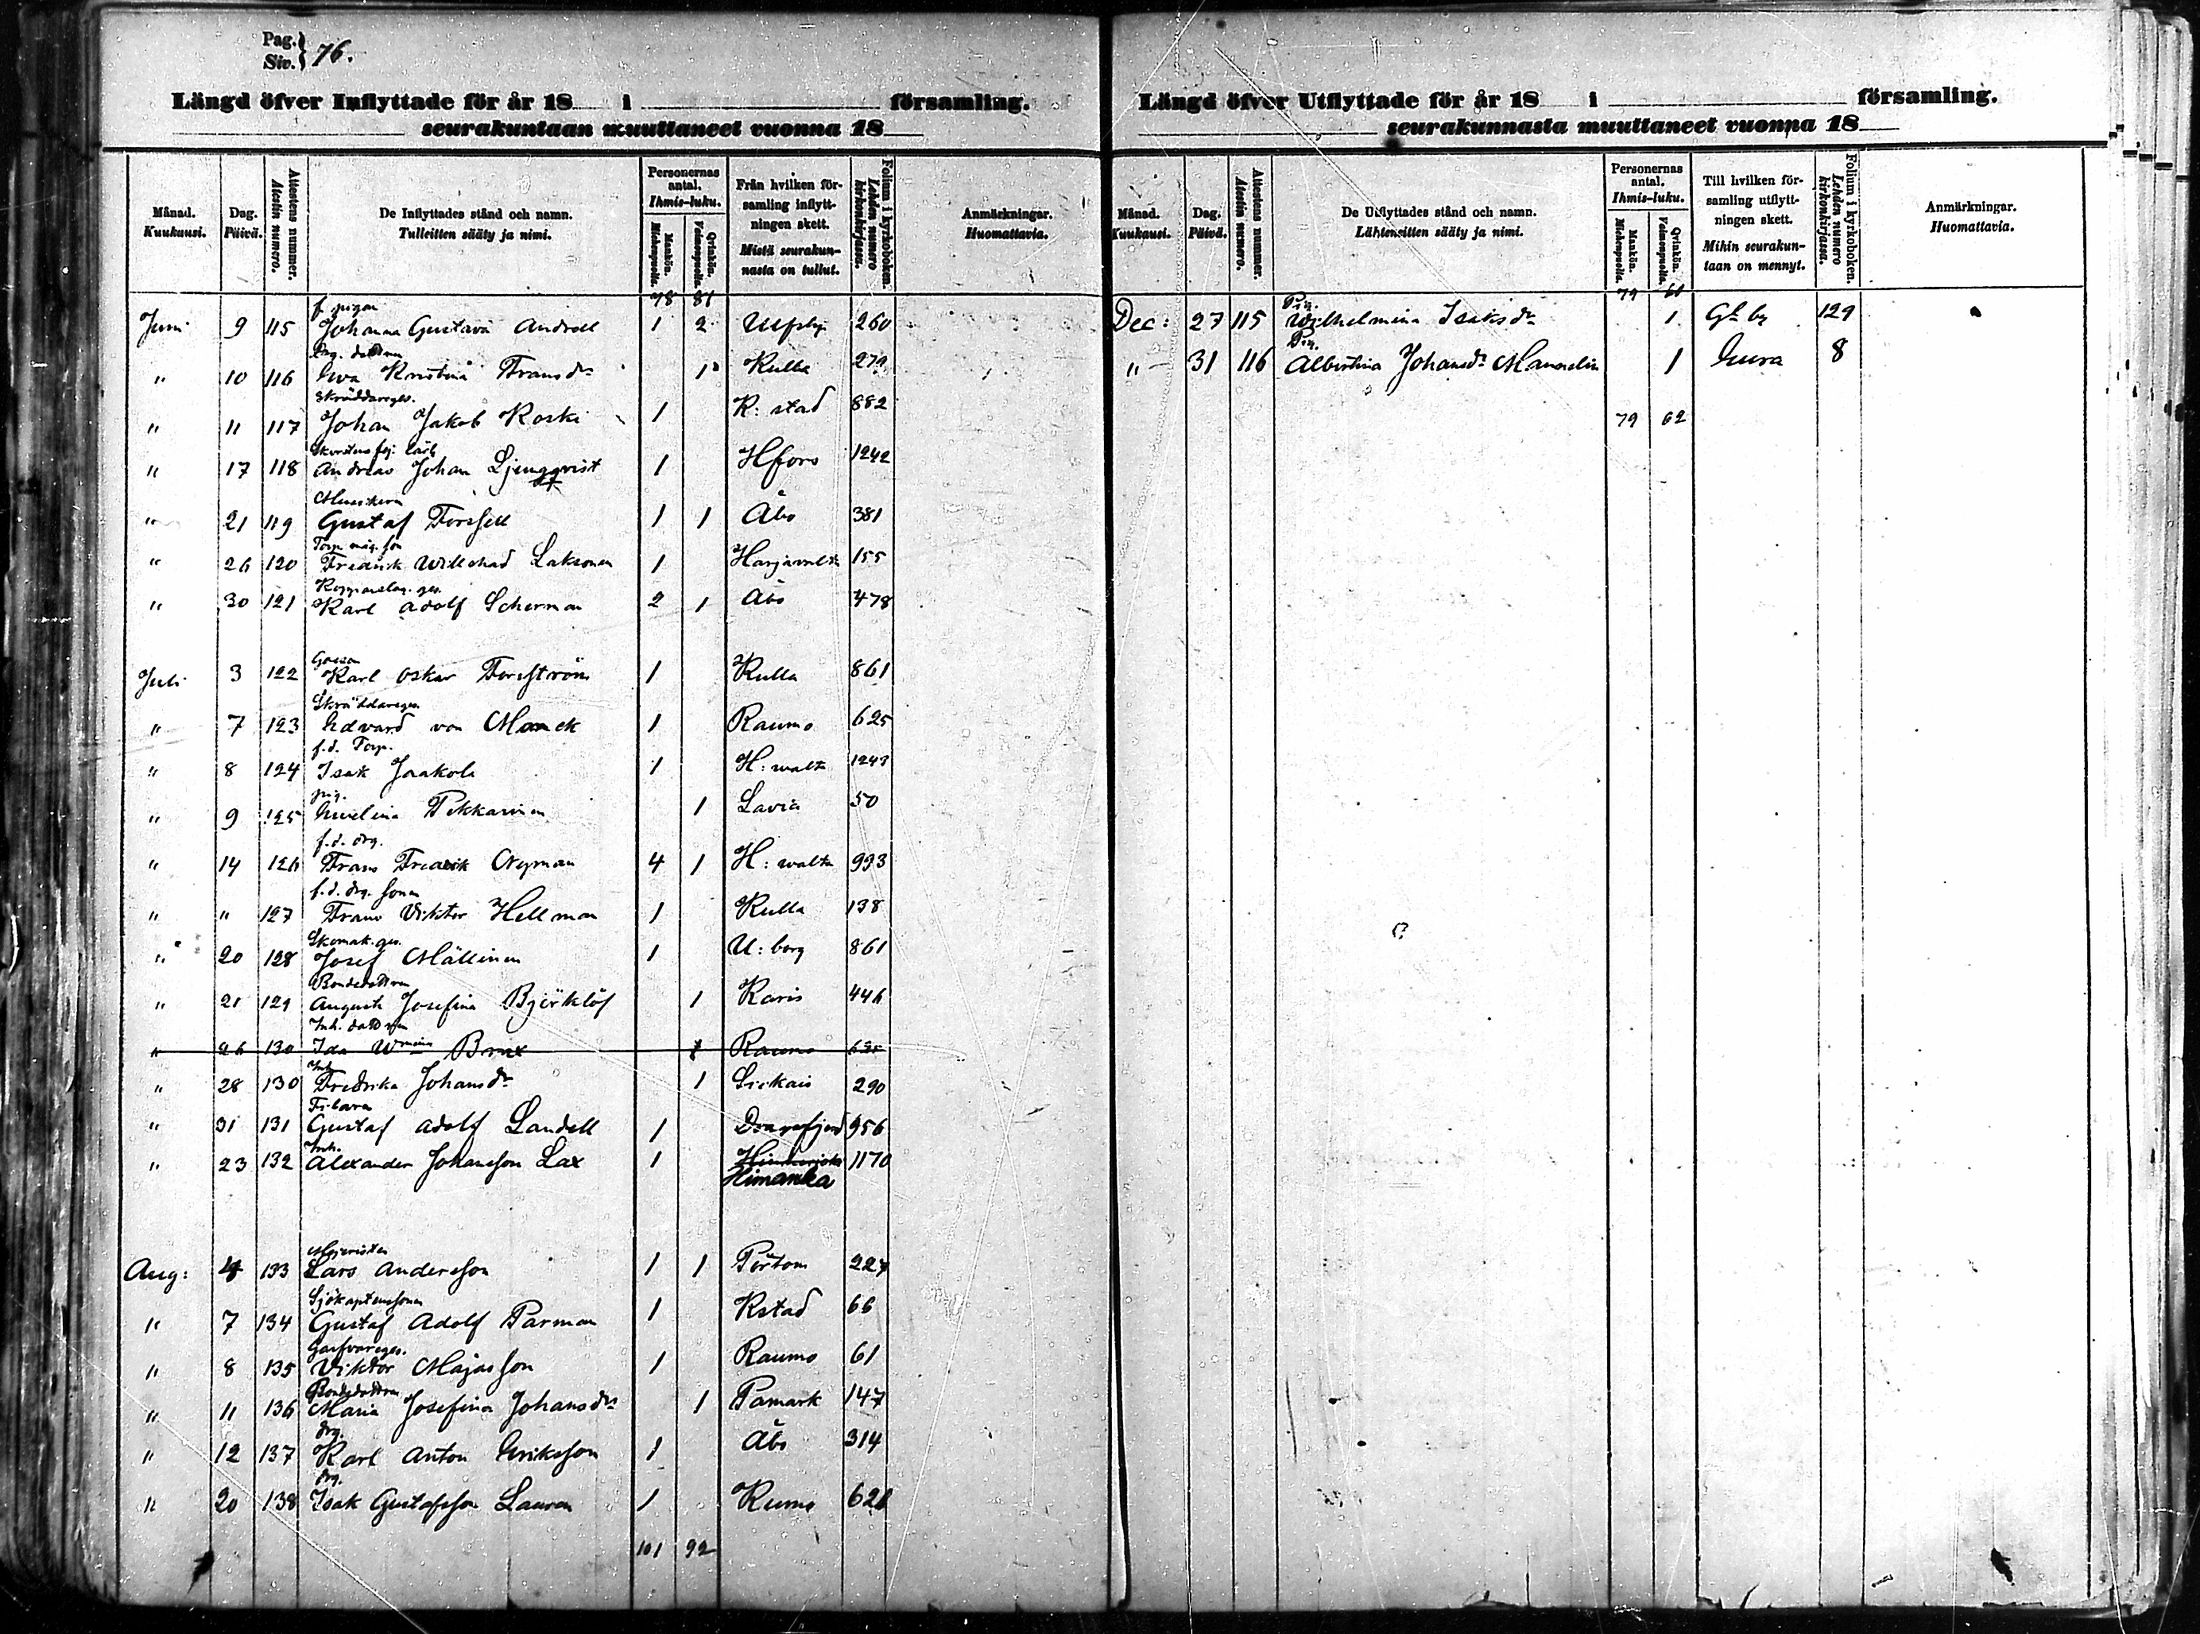 Pag. Siv. } 76.
Längd öfver Inflyttade för år 18 i församling.
seurakuntaan muuttaneet vuonna 18
Månad. Kuukausi.
Dag. Päivä.
Attestens nummer. Atestin numero.
De Inflyttades stånd och namn. Tulleitten sääty ja nimi.
Personernas antal. Ihmis-luku.
Mankön. Miehenpuolia.
Qvinkön. Vaimonpuolia.
Från hvilken församling inflyttningen skett. Mistä seurakunnasta on tullut.
Folium i kyrkoboken. Lehden numero kirkonkirjassa.
Anmärkningar. Huomattavia.
78 81
f. pigan
Juni 9 115 Johanna Gustava 1 2 Ulfsby 260
" 10 116 Kristina Fransdr 1 Kulla 279
Skräddareges.
" 11 117 Johan Jakob Koski 1 K: stad 882
" 17 118 Andreas Johan Ljungqvist 1 Hfors 1242
" 21 119 Gustaf Forssell 1 1 Åbo 381
" 26 120 Fredrik Willehad Laksonen 1 155
" 30 121 Karl Adolf Scherman 2 1 Åbo 478
Juli 3 122 Karl Oskar Forsström 1 Kulla 861
Skräddareges.
" 7 123 Edvard von Manck 1 Raumo 625
f.d. Torp.
" 8 124 Isak Jaakola 1 H: walta 1243
pig.
" 9 125 Pekkarinen 1 Lavia 50
f.d. drg.
" 14 126 Frans Fredrik Nyman 4 1 H: walta 993
f.d. drg. sonen
" " 127 Frans Viktor Hellman 1 Kulla 138
Skomak. ges.
" 20 128 Josef Mällinen 1 U: borg 861
Bondedottren
" 21 129 Augusta Josefina Björklöf 1 Karis 446
Inh. dottren
" 26 130 Ida Wmina Brax 1 Raumo 625
Inh.
" 28 130 Fredrika Johansdr 1 Siikais 290
" 31 131 Gustaf Adolf Landell 1 Dragsfjerd 956
Inh.
" 23 132 Alexander Johansson Lax 1 1170
Himanka
Mejeristen
Aug: 4 133 Lars Andersson 1 1 Pörtom 227
Sjökaptenssonen
" 7 134 Gustaf Adolf Parman 1 Kstad 66
Garfvareges.
" 8 135 Viktor Majasson 1 Raumo 61
Bondedottren
" 11 136 Maria Josefina Johansdr 1 Pamark 147
drg.
" 12 137 Karl Anton Eriksson 1 Åbo 314
drg.
" 20 138 Isak Gustafsson Lauren 1 Rumo
101 92
Längd öfver Utflyttade för år 18 i församling.
seurakunnasta muuttaneet vuonna 18
Månad. Kuukausi.
Dag. Päivä.
Attestens nummer. Atestin numero.
De Utflyttades stånd och namn. Lähteneitten sääty ja nimi.
Personernas antal. Ihmis-luku.
Mankön. Miehenpuolia.
Qvinkön. Vaimonpuolia.
Till hvilken församling utflyttningen skett. Mihin seurakuntaan on mennyt.
Folium i kyrkoboken. Lehden numero kirkonkirjassa.
Anmärkningar. Huomattavia.
79 60
Pig.
Dec: 27 115 Wilhelmina Isaksdr 1 129
Pig.
" 31 116 Albertina Johansdr Mannelin 1 Eura 8
79 62